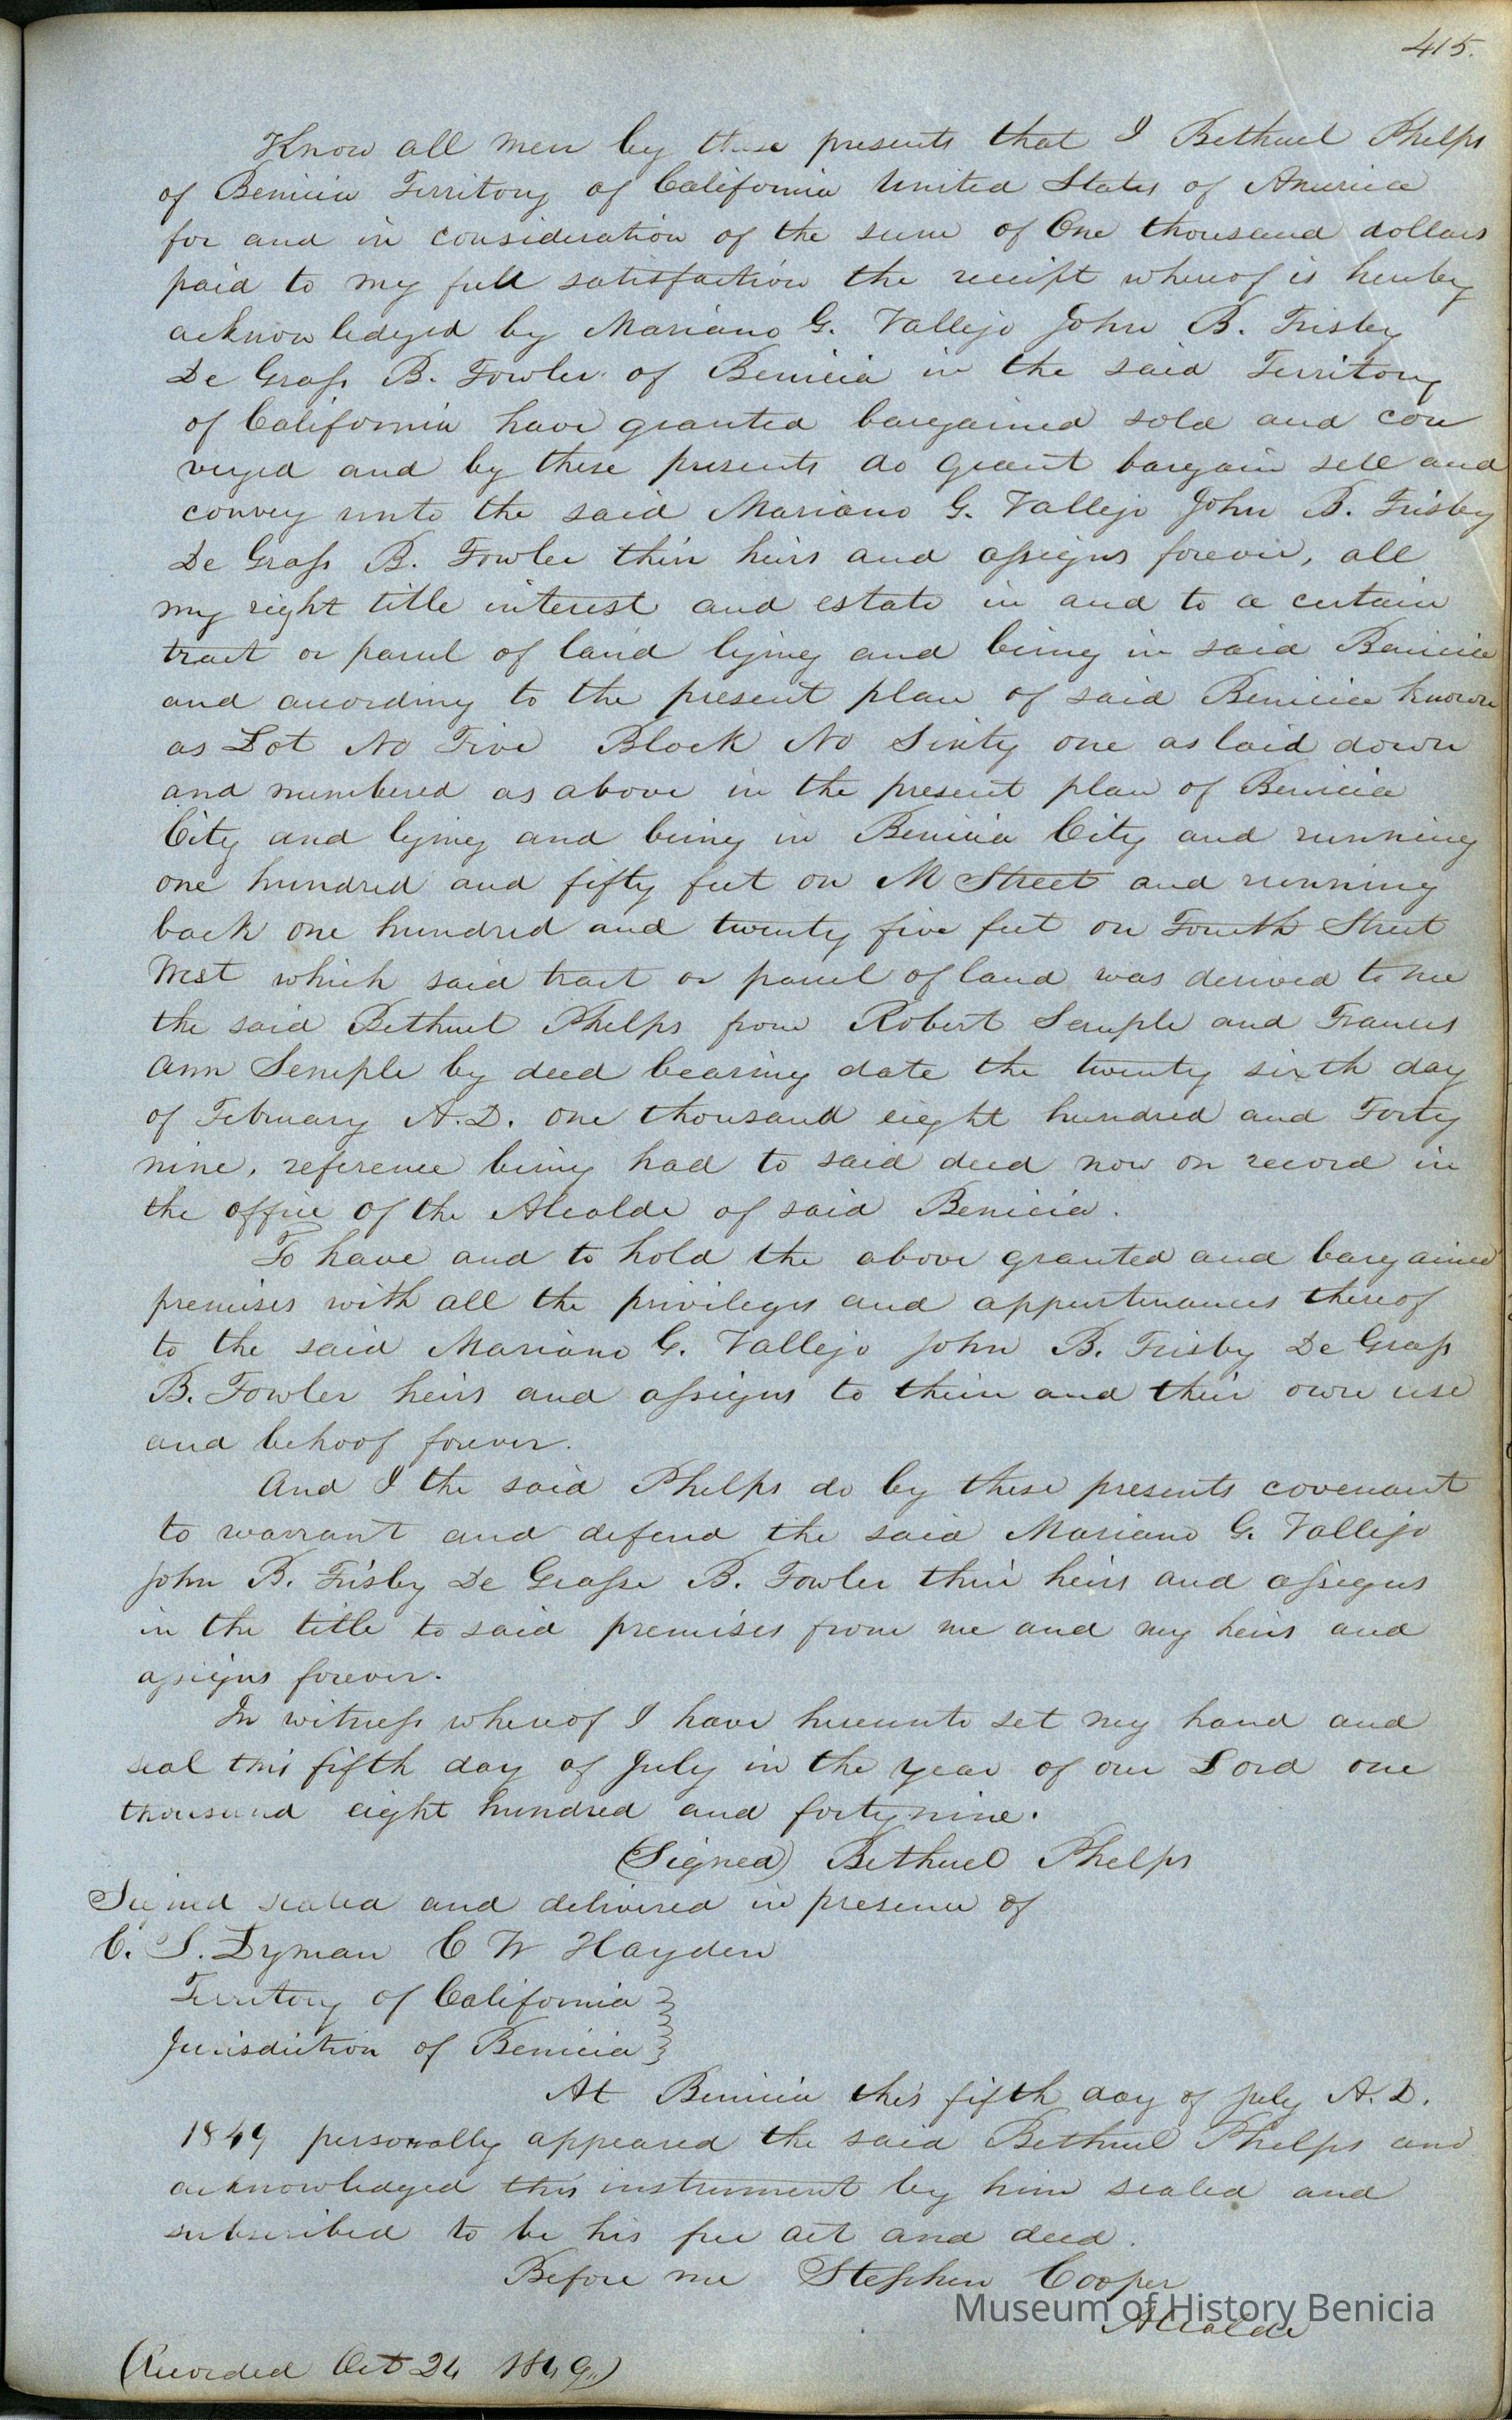 415.
Know all men by these presents that I Bethuel Phelps
of Benicia Territory of California United States of America
for and in consideration of the sum of One thousand dollars
paid to my full satisfaction the receipt whereof is hereby
acknowledged by Mariano G. Vallejo John B. Frisby
De Grass B. Fowler of Benicia in the said Territory
of California have granted bargained sold and con
veyed and by these presents do grant bargain sell and
convey unto the said Mariano G. Vallejo John B. Frisby
De Grass B. Fowler their heirs and assigns forever, all
my right title interest and estate in and to a certain
tract or parcel of land lying and being in said Benicia
and according to the present plan of said Benicia known
as Lot No Five Block No Sixty one as laid down
and numbered as above in the present plan of Benicia
City and lying and being in Benicia City and running
one hundred and fifty feet on M Street and running
back one hundred and twenty five feet on Fourth Street
West which said tract or parcel of land was derived to me
the said Bethuel Phelps from Robert Semple and Frances
Ann Semple by deed bearing date the twenty sixth day
of February A.D. one thousand eight hundred and Forty
nine, reference being had to said deed now on record in
the office of the Alcalde of said Benicia.
To have and to hold the above granted and bargained
premises with all the privileges and appurtenances thereof
to the said Mariano G. Vallejo John B. Frisby De Grass
B. Fowler heirs and assigns to them and their own use
and behoof forever.
And I the said Phelps do by these presents covenant
to warrant and defend the said Mariano G. Vallejo
John B. Frisby De Grasse B. Fowler their heirs and assigns
in the title to said premises from me and my heirs and
assigns forever.
In witness whereof I have hereunto set my hand and
seal this fifth day of July in the year of our Lord one
thousand eight hundred and forty nine.
(Signed) Bethuel Phelps
Signed sealed and delivered in presence of
C. S. Lyman C W Hayden
Territory of California }
Jurisdiction of Benicia }
At Benicia this fifth day of July A.D.
1849 personally appeared the said Bethuel Phelps and
acknowledged this instrument by him sealed and
subscribed to be his free act and deed.
Before me Stephen Cooper
Alcalde
Museum of History Benicia
(Recorded Oct 24 1849.)